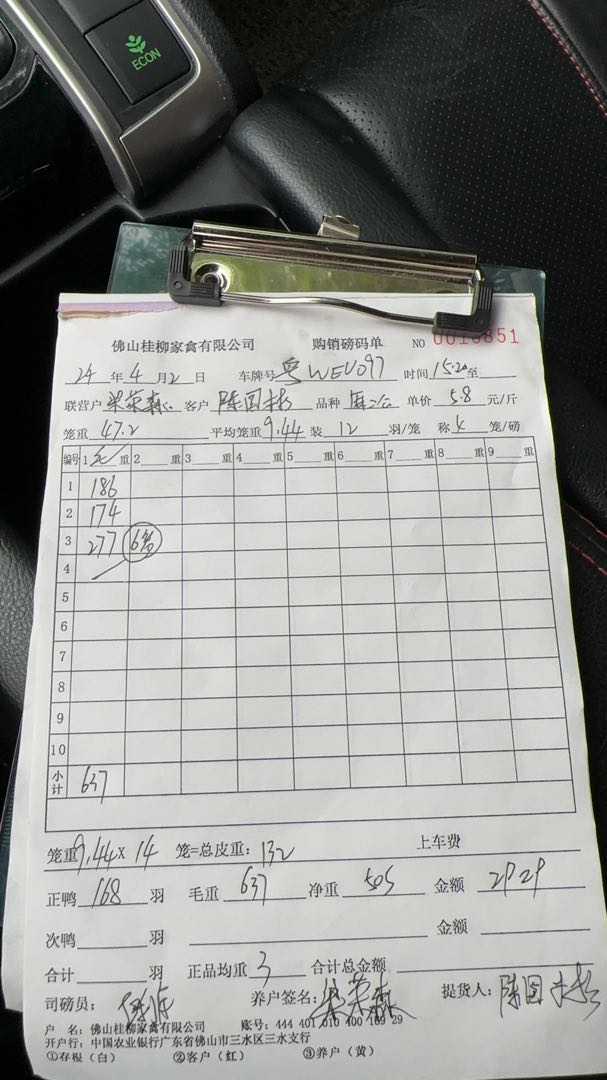 ECON
佛山桂柳家禽有限公司 购销磅码单 NO 0010851
24 年 4 月 2 日 车牌号 粤WEV097 时间 15:20 至
联营户 荣森 客户 陈国 品种 麻二公 单价 5.8 元/斤
笼重 47.2 平均笼重 9.44 装 12 羽/笼 称 4 笼/磅
编号 1 毛 重 2 重 3 重 4 重 5 重 6 重 7 重 8 重 9 重
1 186
2 174
3 277 6笼
4
5
6
7
8
9
10
小计 637
笼重 9.44 x 14 笼=总皮重: 132 上车费
正鸭 168 羽 毛重 637 净重 505 金额 2929
次鸭 羽 金额
合计 羽 正品均重 3 合计总金额
司磅员: 养户签名: 荣森 提货人: 陈国
户 名: 佛山桂柳家禽有限公司 账号: 444 401 010 400 169 29
开户行: 中国农业银行广东省佛山市三水区三水支行
①存根(白) ②客户(红) ③养户(黄)